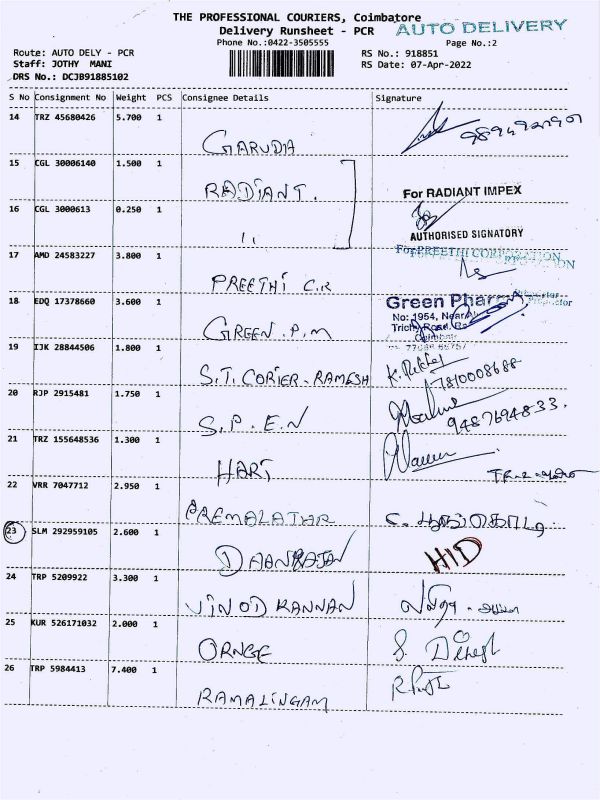 THE PROFESSIONAL COURIERS, Coimbatore
AUTO DELIVERY
Delivery Runsheet - PCR
Phone No.:0422-3505555
Page No.:2
Route: AUTO DELY - PCR
RS No.: 918851
Staff: JOTHY MANI
RS Date: 07-Apr-2022
DRS No.: DCJB91885102
S No Consignment No Weight PCS Consignee Details Signature
14 TRZ 45680426 5.700 1
GARUDA
15 CGL 30006140 1.500 1
RADIANT. For RADIANT IMPEX
16 CGL 3000613 0.250 1
11 AUTHORISED SIGNATORY
17 AMD 24583227 3.800 1
For PREETHI CORPORATION
PREETHI C.R
18 EDQ 17378660 3.600 1
Green Phar
No: 1954, Near
GREEN.P.M
Trichy Road,
19 IJK 28844506 1.800 1
S.T. CORIER-RAMESH 7810008688
20 RJP 2915481 1.750 1
S.P.E.N 9487694833.
21 TRZ 155648536 1.300 1
HARI
22 VRR 7047712 2.950 1
PREMALATHA
23 SLM 292959105 2.600 1
HID
24 TRP 5209922 3.300 1
VINOD KANNAN
25 KUR 526171032 2.000 1
ORNGE S. Dinesh
26 TRP 5984413 7.400 1
RAMALINGAM